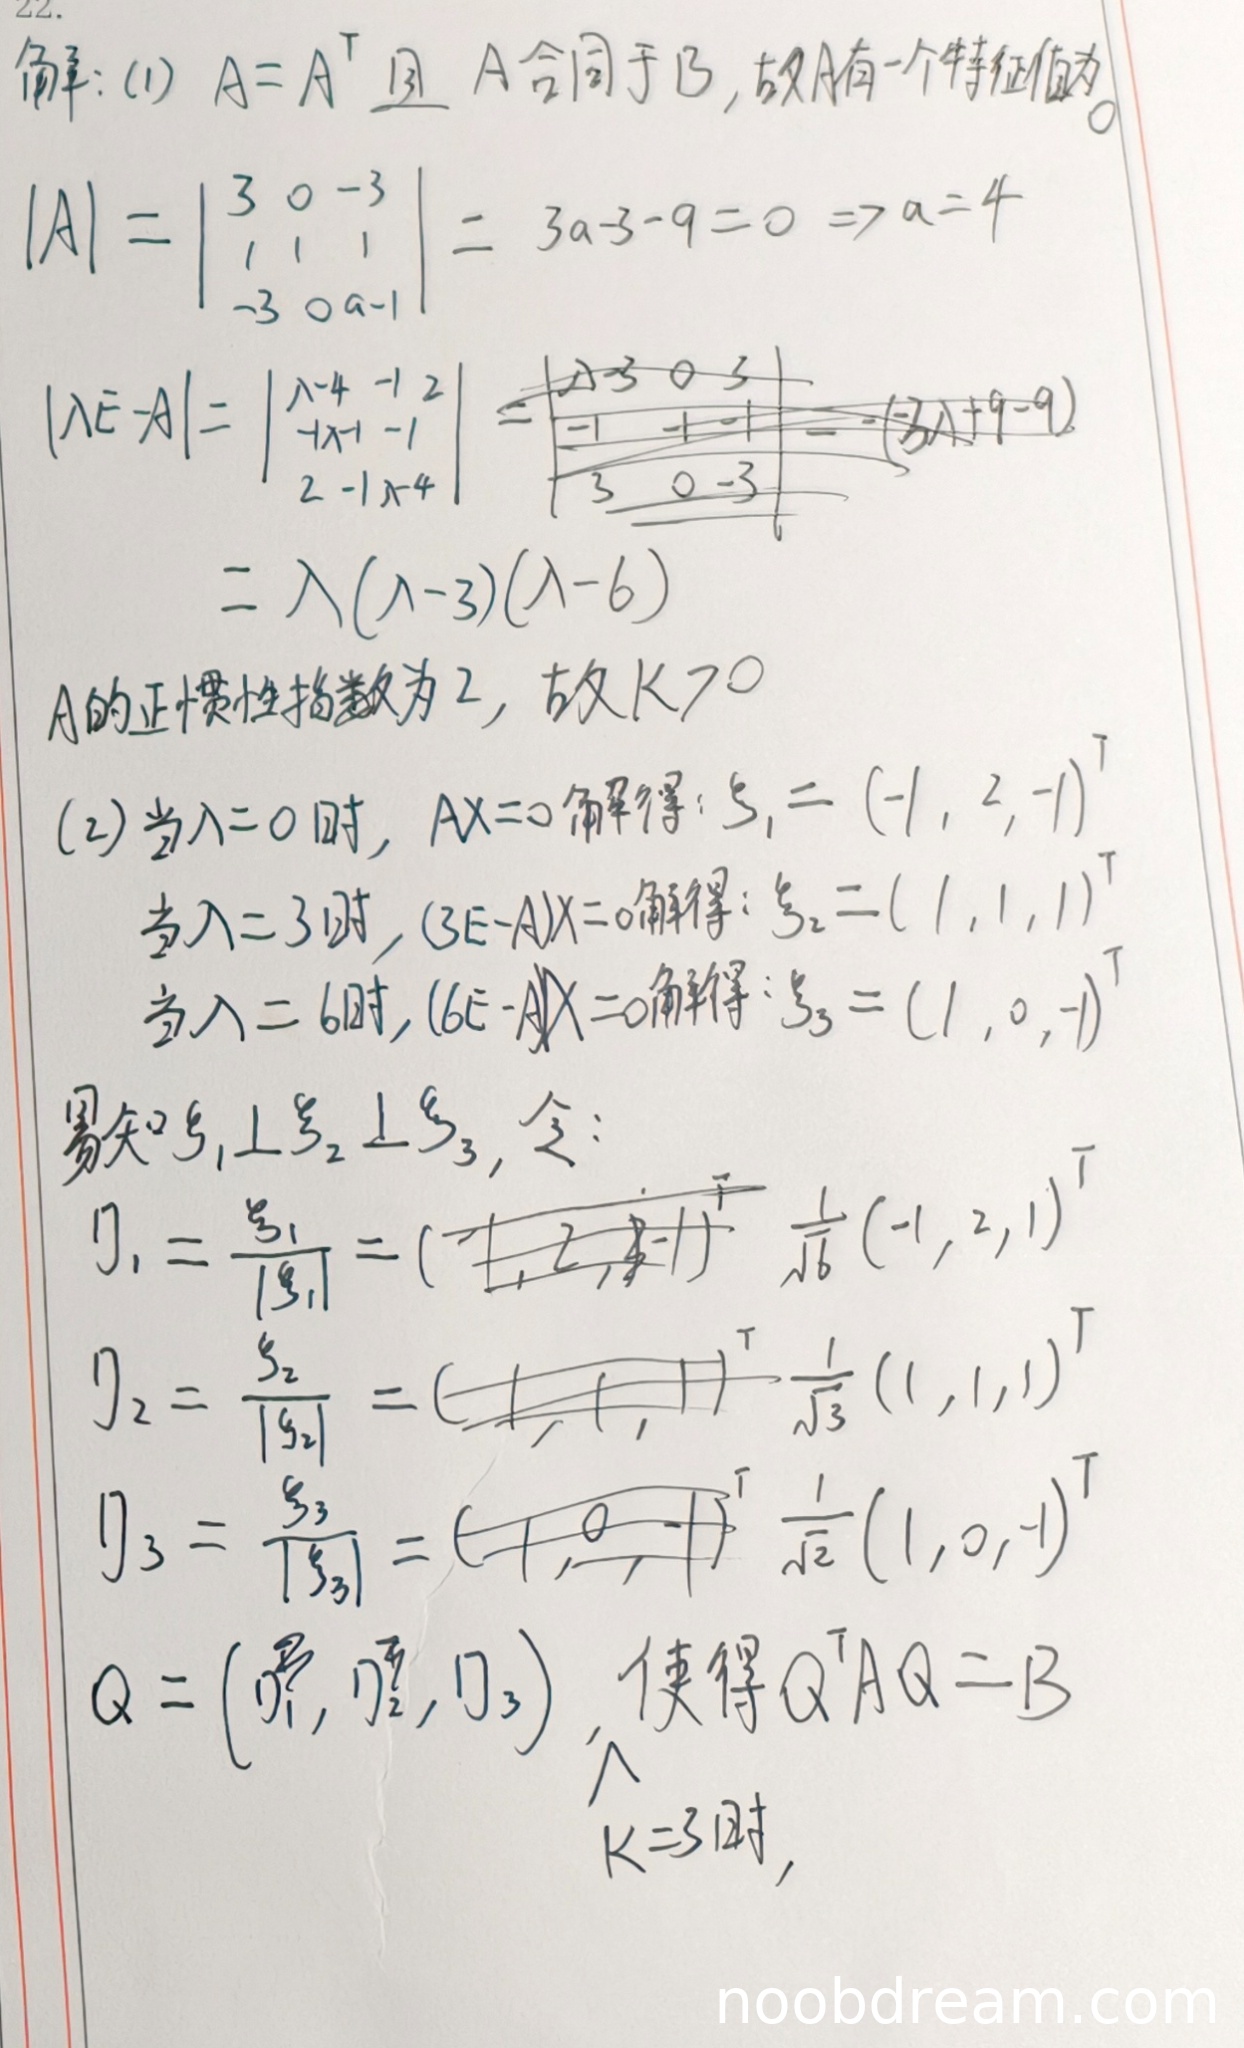 22.
解:(1) A=Aᵀ 且 A合同于B,故A有一个特征值为0
|A| = | 3 0 -3 | = 3a-3-9=0 => a=4
1 1 1
-3 0 a-1
|λE-A| = | λ-4 -1 2 | = | λ-3 0 3 | = -(-3λ+9-9)
-1 λ-1 -1 -1 -1 -1
2 -1 λ-4 3 0 -3
= λ(λ-3)(λ-6)
A的正惯性指数为2, 故K>0
(2)当λ=0时, AX=0解得: ξ₁=(-1, 2, -1)ᵀ
当λ=3时, (3E-A)X=0解得: ξ₂=(1, 1, 1)ᵀ
当λ=6时, (6E-A)X=0解得: ξ₃=(1, 0, -1)ᵀ
易知ξ₁⊥ξ₂⊥ξ₃, 令:
η₁ = ξ₁/|ξ₁| = (-1, 2, -1)ᵀ 1/√6 (-1, 2, 1)ᵀ
η₂ = ξ₂/|ξ₂| = (1, 1, 1)ᵀ 1/√3 (1, 1, 1)ᵀ
η₃ = ξ₃/|ξ₃| = (1, 0, -1)ᵀ 1/√2 (1, 0, -1)ᵀ
Q = (η₁, η₂, η₃), 使得QᵀAQ=B
K=3时,
noobdream.com